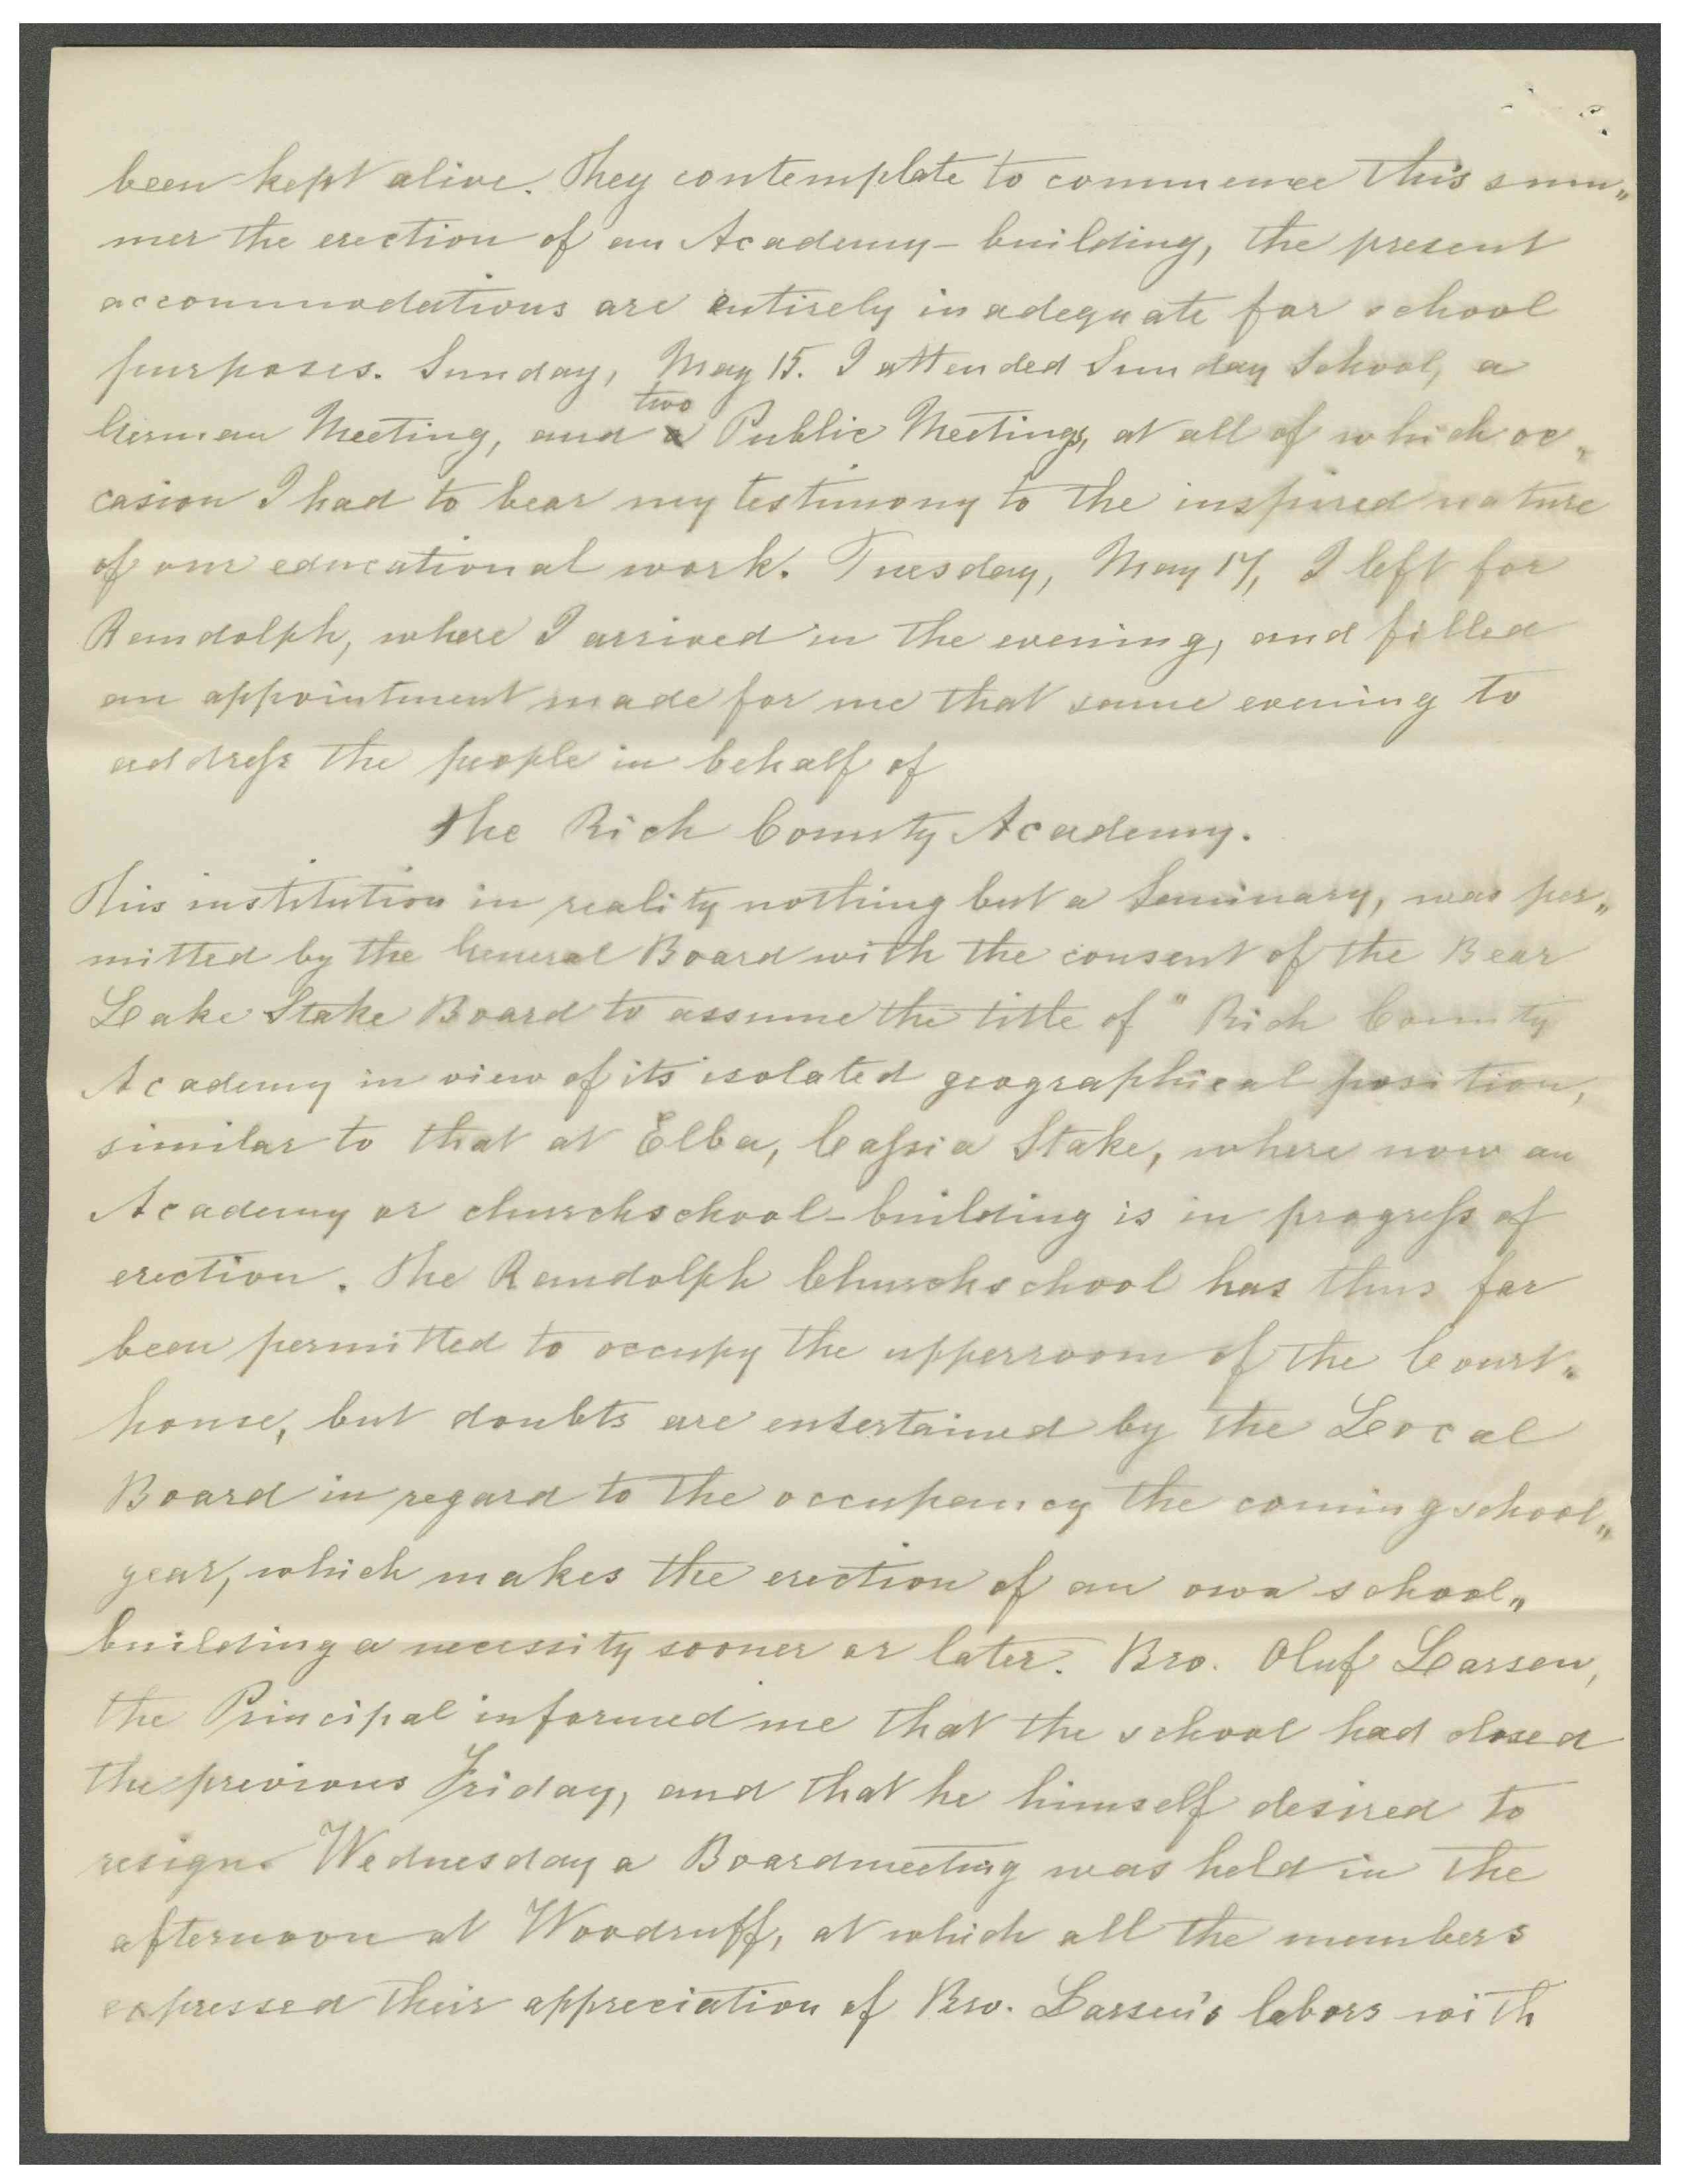 been kept alive. They contemplate to commence this sum„
mer the erection of an Academy-building, the present
accommodations are entirely inadequate for school
purposes. Sunday, May 15. I attended Sunday School, a
two
German Meeting, and a Public Meetings, at all of which oc„
casion I had to bear my testimony to the inspired nature
of our educational work. Tuesday, May 17, I left for
Randolph, where I arrived in the evening, and filled
an appointment made for me that same evening to
address the people in behalf of
The Rich County Academy.
This institution in reality nothing but a Seminary, was per„
mitted by the General Board with the consent of the Bear
Lake Stake Board to assume the title of "Rich County
Academy in view of its isolated geographical position,
similar to that at Elba, Cassia Stake, where now an
Academy or churchschool-building is in progress of
erection. The Randolph Churchschool has thus far
been permitted to occupy the upperroom of the Court„
house, but doubts are entertained by the Local
Board in regard to the occupancy the coming school„
year, which makes the erection of an own school„
building a necessity sooner or later. Bro. Oluf Larsen,
the Principal informed me that the school had closed
the previous Friday, and that he himself desired to
resign. Wednesday a Boardmeeting was held in the
afternoon at Woodruff, at which all the members
expressed their appreciation of Bro. Larsen's labors with